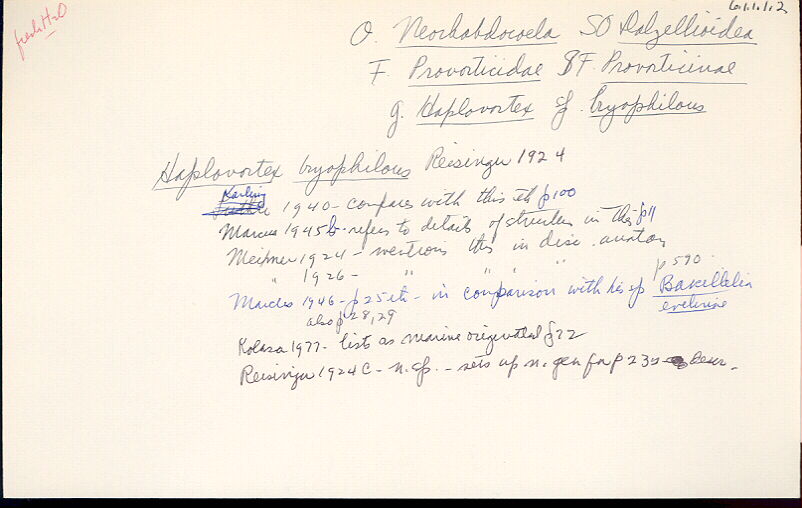 fresh H2O
6.1.1.1.2
O. Neorhabdocoela SO Dalyellioidea
F. Provorticidae SF. Provorticinae
g. Haplovortex sp. bryophilous
Haplovortex bryophilous Reisinger 1924
Karling
1940 - compares with this etc p100
Marcus 1945b - refers to details of structure in this p11
Meixner 1924 - mentions this in disc. anatomy
" 1926 - " " " " p 590
Marcus 1946 - p25 etc - in comparison with his sp Bakellelia
evelinae
also p 28, 29
Kolasa 1977 - lists as marine originated p72
Reisinger 1924C - n. sp. - sets up n. gen for p 232 Descr.